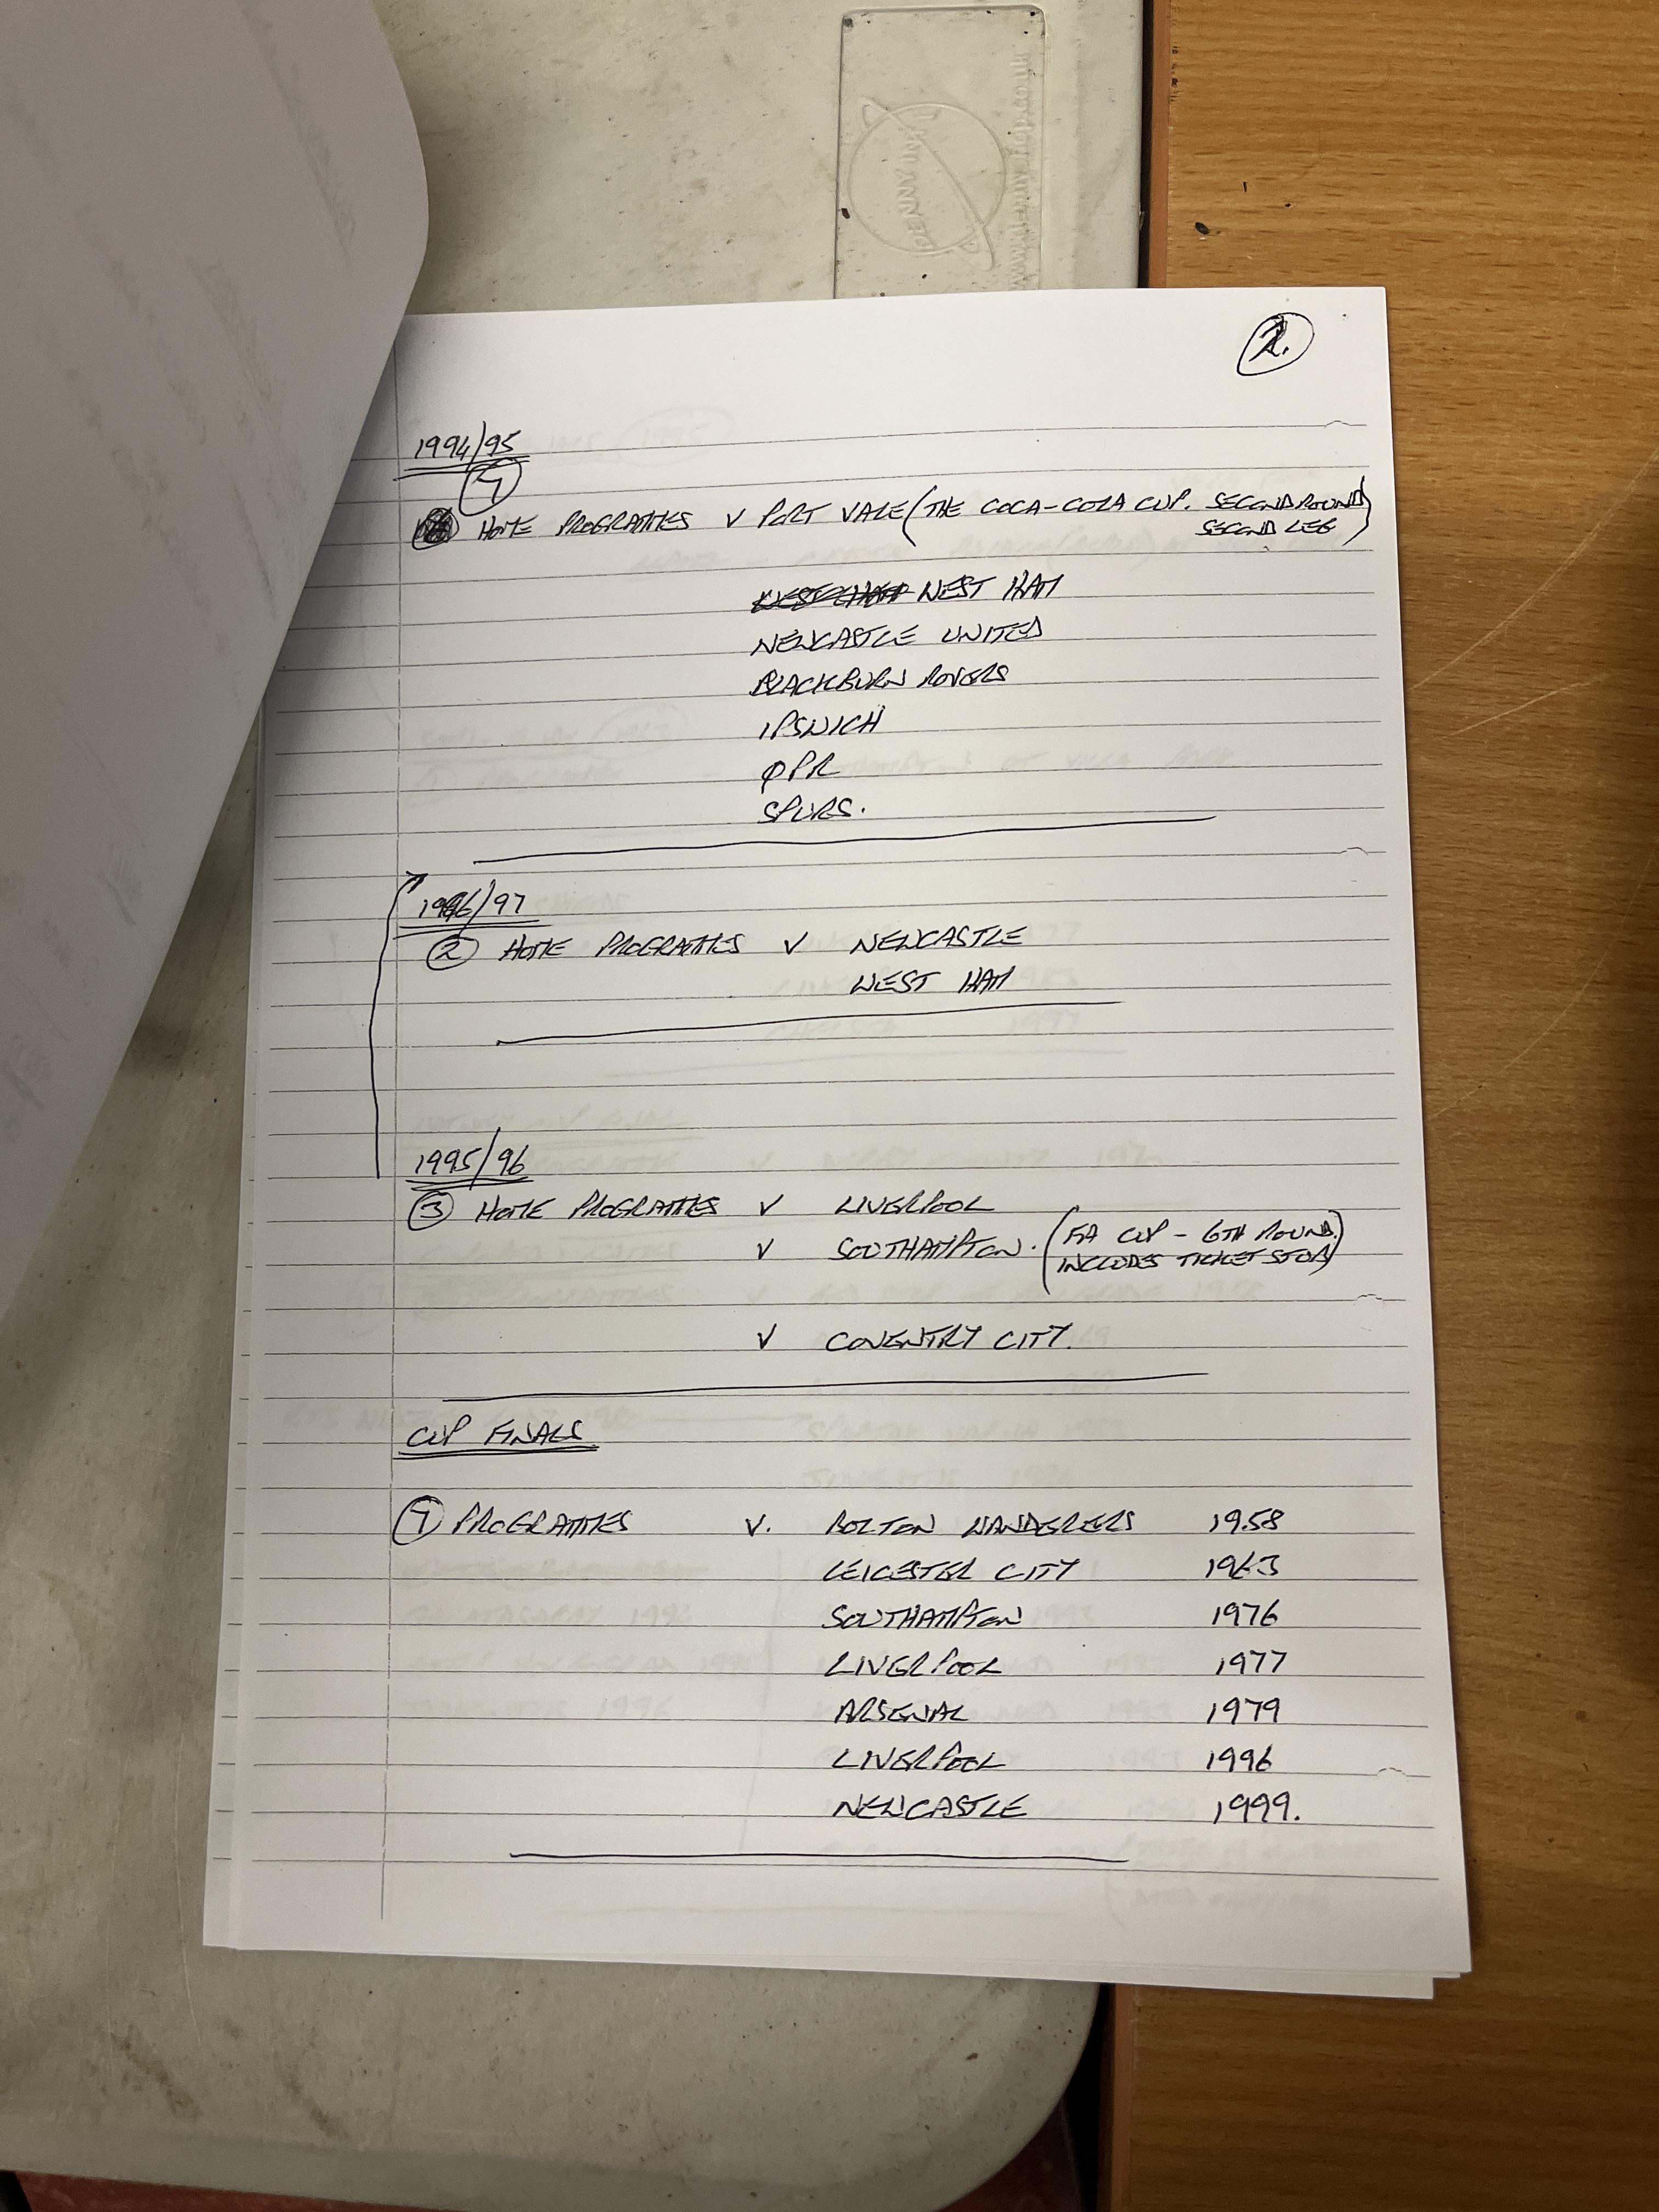 2.
1994/95
7
HOME PROGRAMMES V PORT VALE (THE COCA-COLA CUP. SECOND ROUND
SECOND LEG)
WEST HAM
NEWCASTLE UNITED
BLACKBURN ROVERS
IPSWICH
QPR
SPURS.
1996/97
2 HOME PROGRAMMES V NEWCASTLE
WEST HAM
1995/96
3 HOME PROGRAMMES V LIVERPOOL
V SOUTHAMPTON. (FA CUP - 6TH ROUND.
INCLUDES TICKET STUB)
V COVENTRY CITY.
CUP FINALS
7 PROGRAMMES V. BOLTON WANDERERS 1958
LEICESTER CITY 1963
SOUTHAMPTON 1976
LIVERPOOL 1977
ARSENAL 1979
LIVERPOOL 1996
NEWCASTLE 1999.